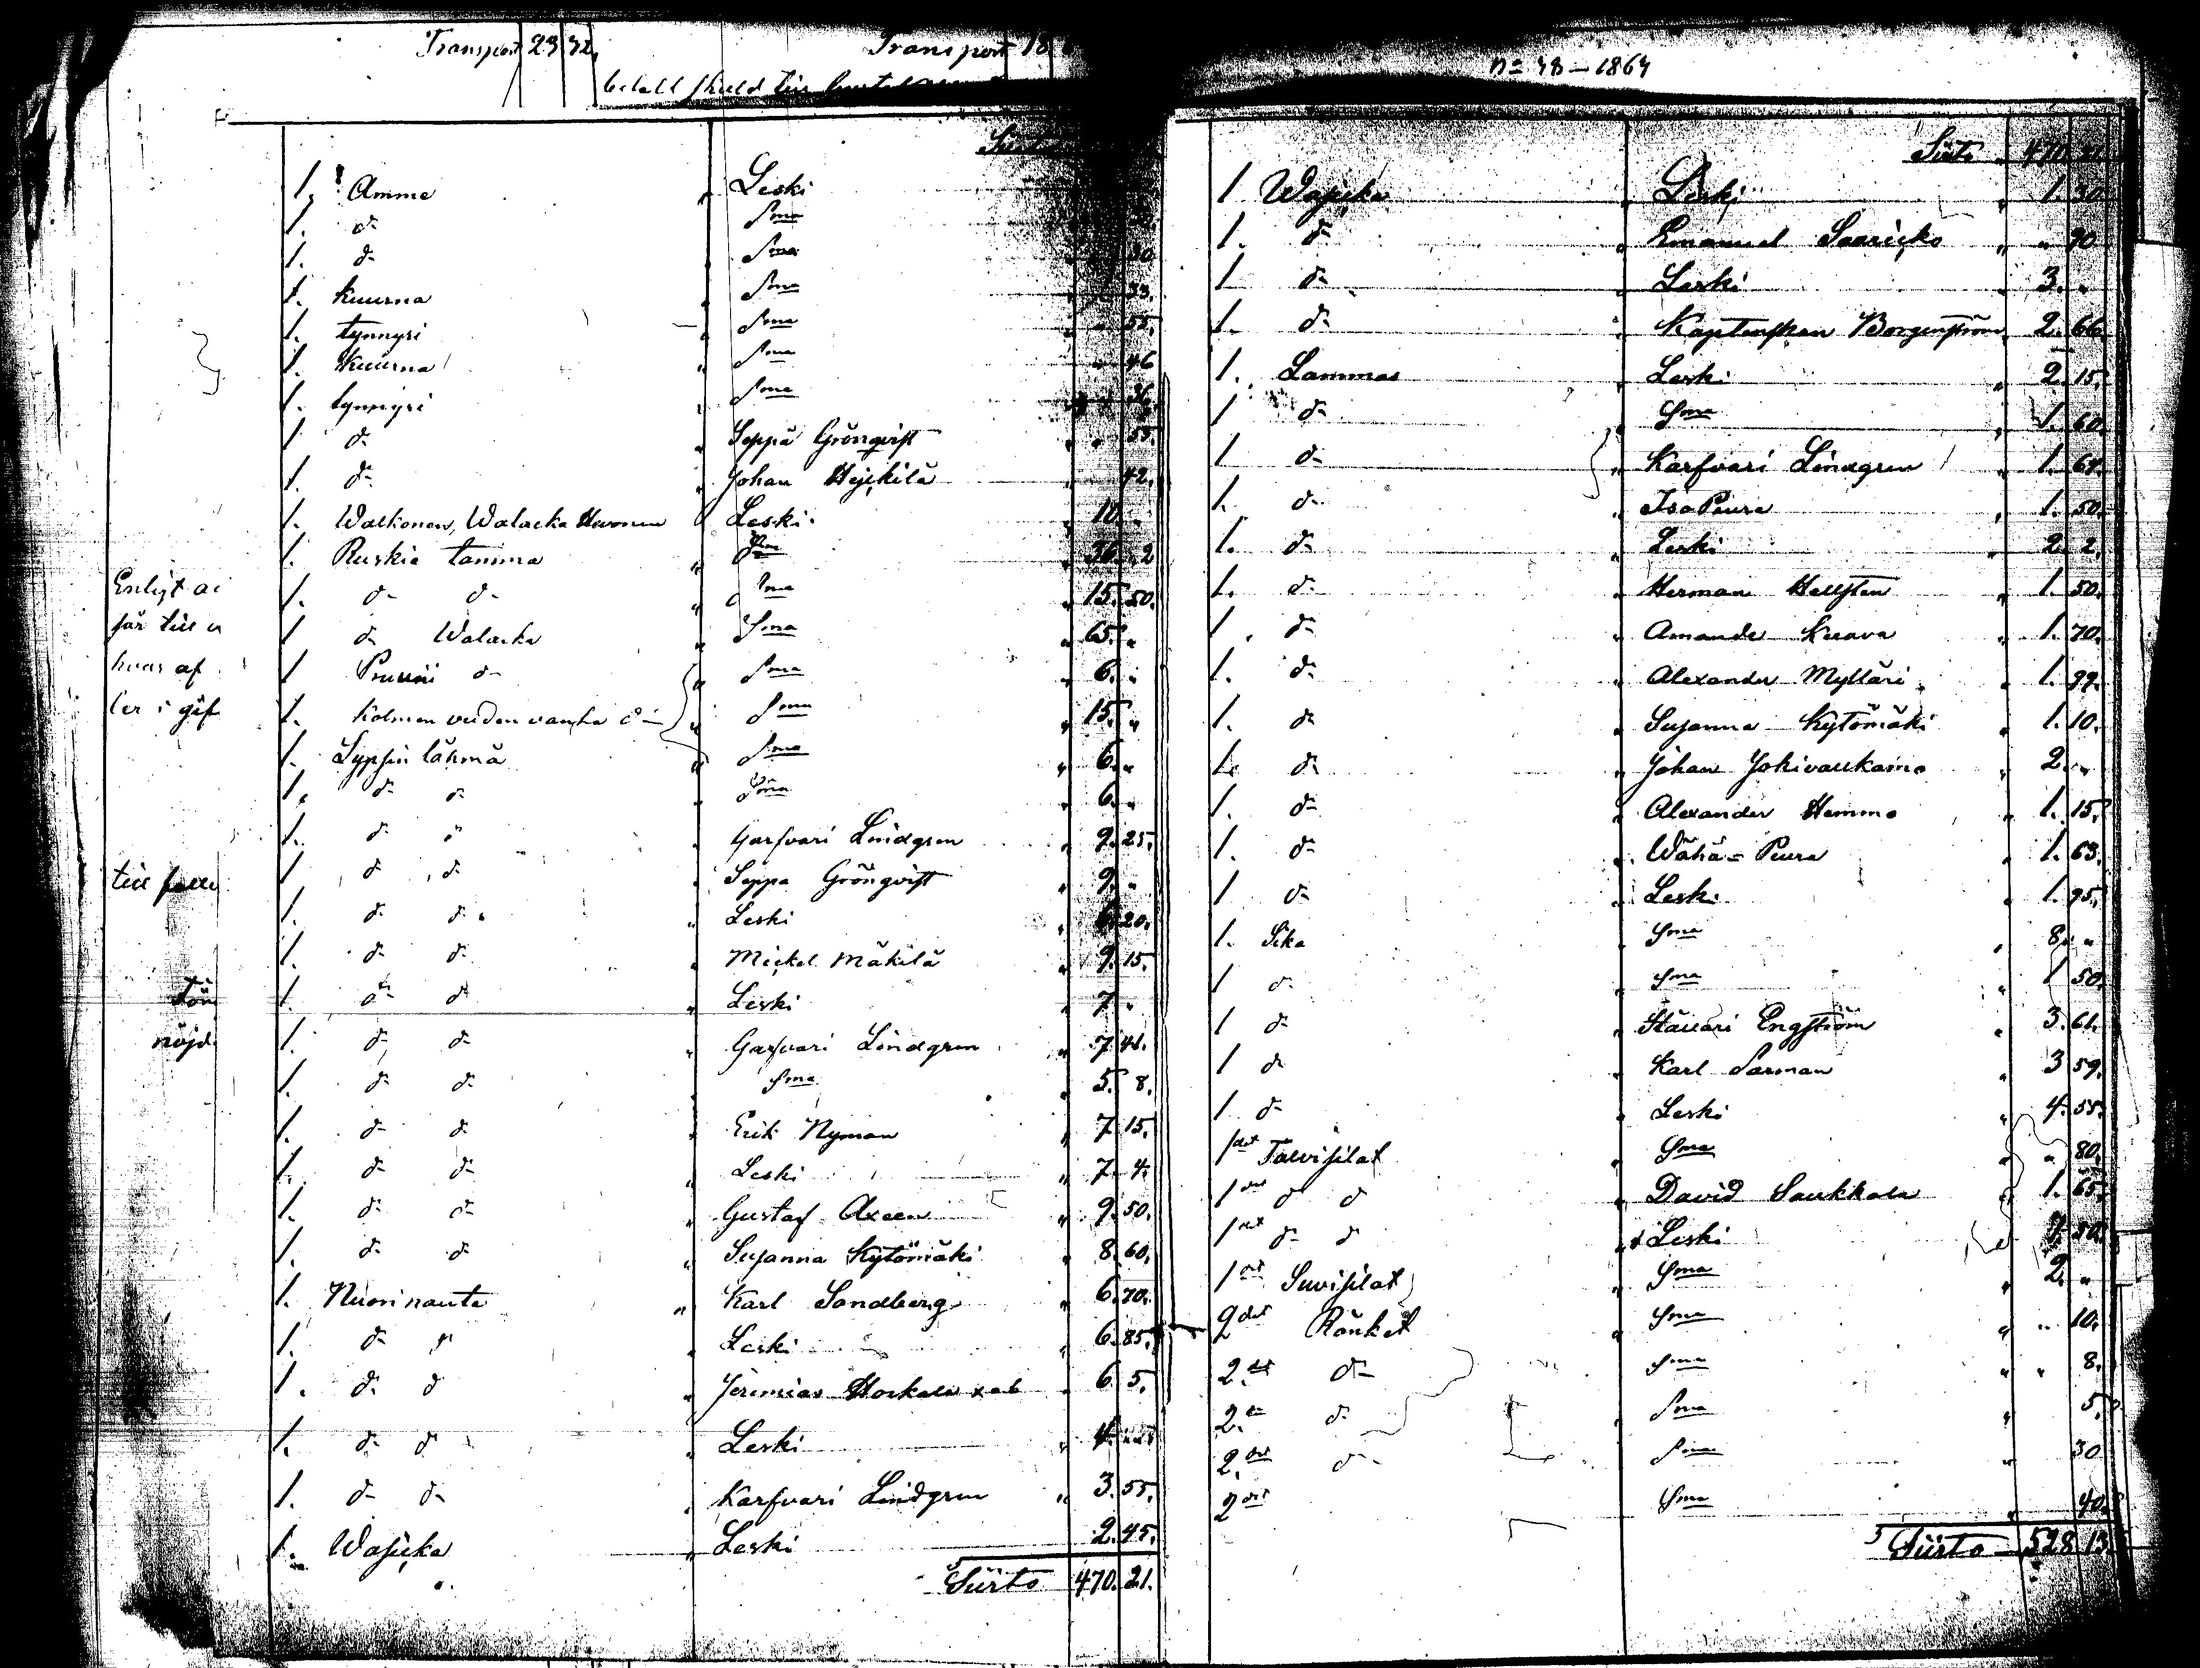 Transport 23 32,
Transport 18
n= 48 - 1864
1. Amme " Leski
1. d- " Sma
1. d- " Sma 30
1. Kuurna " Sma 33.
1. tynnyri " Sma " 55.
1. Kuurna " Sma " 46
1. tynnyri " Sma 36.
1 d- " Seppä Grönqvist " 55.
1. d- " Johan Hejkilä " 42.
1. Walkonen, Walacka Hevonen Leski 10 "
1. Ruskia tamma " Sma 36 2
1. d- d- " Sma " 15. 50.
1 d- Walacka " Sma " 65. "
1 Pruuni d- " Sma " 6. "
1. Kolmen vuoden vanha d- " Sma " 15. "
1. Lypsin lähmä " Sma " 6. "
1. d- d- " Sma " 6. "
1. d- d- " Garfvari Lindgren " 9. 25.
1 d- d- " Seppa Grönqvist " 9. "
1. d- d- " Leski 6. 20.
1. d- d- " Mickel Mäkilä " 9. 15.
1. d- d- " Leski " 7 "
1. d- d- " Garfvari Lindgren " 7 41.
1. d- d- " Sma " 5. 8.
1. d- d- " Erik Nyman " 7 15.
1. d- d- " Leski " 7. 4.
1. d- d- " Gustaf Axeen " 9. 50.
1. d- d- " Susanna Kytömäki " 8. 60.
1. Nuorinauta " Karl Sandberg " 6. 70.
1. d- d- " Leski " 6. 85.
1. d- d " Jeremias Horkala 6 5.
1. d- d- " Leski " 4.
1. d- d- " Karfvari Lindgren " 3. 55.
1. Wasicka " Leski 2. 45.
Siirto 470. 21.
Enligt
för till
hvar af
ler i gif
till
nöjd
Siirto " 470 21.
1 Wasicka " Leski " 1. 30.
1. d- " Emanuel Saaricko " " 90
1 d- " Leski " 3. "
1. d- " Kaptenskan Borgenström 2. 66.
1. Lammas " Leski " 2. 15.
1 d- Sma " 1. 60.
1 d- " Karfvari Lindgren " 1. 64.
1. d- " Iso Peura " 1. 50.
1. d- " Leski " 2. 2.
1. d- " Herman Hellsten " 1. 50.
1. d- " Amanda Kuava " 1. 70.
1. d- " Alexander Mylläri " 1. 99.
1. d- " Susanna Kytömäki " 1. 10.
1. d- " Johan Jokivaukaina " 2. "
1. d- " Alexander Hemmo " 1. 15.
1. d- " Wähä-Peura " 1. 63.
1 d- " Leski " 1. 95.
1. Sika " Sma " 8. "
1 d- " Sma " 1 50.
1 d- " Hällari Engström " 3. 61.
1 d- " Karl Sarman " 3 59.
1 d- " Leski " 4. 55.
1det Talvisilat " Sma " " 80.
1det d d " David Saukkala " 1. 65.
1det d- d " Leski 7. 50.
1det Suvisilat " Sma 2. "
2det Ränket " Sma " " 10.
2.det d- Sma " " 8.
2. d- " Sma 5.
2.det d- " Sma " 30
2det Sma " 40.
Siirto 528 13.